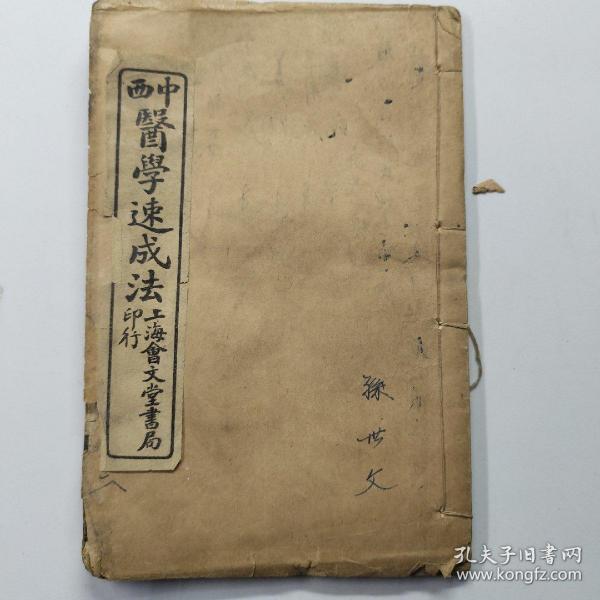 中西
醫學速成法
上海會文堂書局
印行
孫世文
孔夫子旧书网
www.kongfz.com